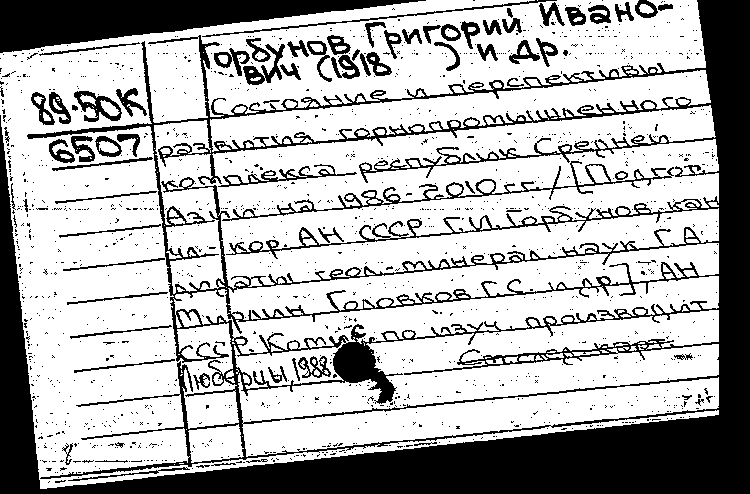 Горбунов, Григорий Ивано-
вич (1918 ) и др.
89-50К
6507
Состояние и перспективы
развития горнопромышленного
комплекса республик Средней
Азии на 1986-2010 гг. / [Подгот.
чл.-кор. АН СССР Г.И. Горбунов, кан
дидаты геол.-минерал. наук Г.А.
Мирлин, Головков Г.С. и др.]; АН
СССР. Комис. по изуч. производит.
Люберцы, 1988.
См. след. карт.